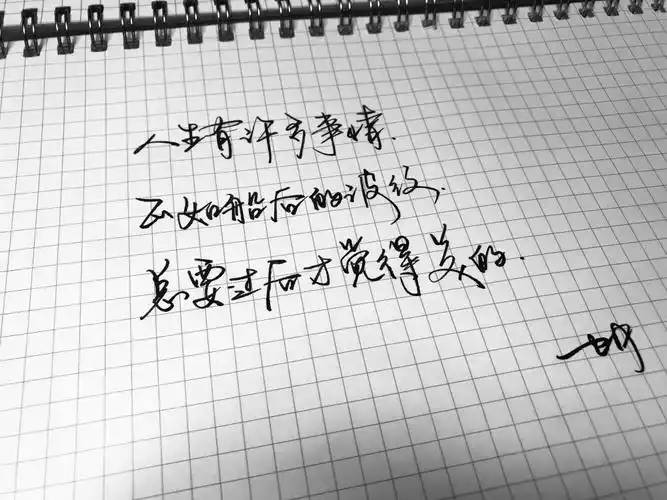 人生有许多事情.
正如船后的波纹.
总要过后才觉得美的.